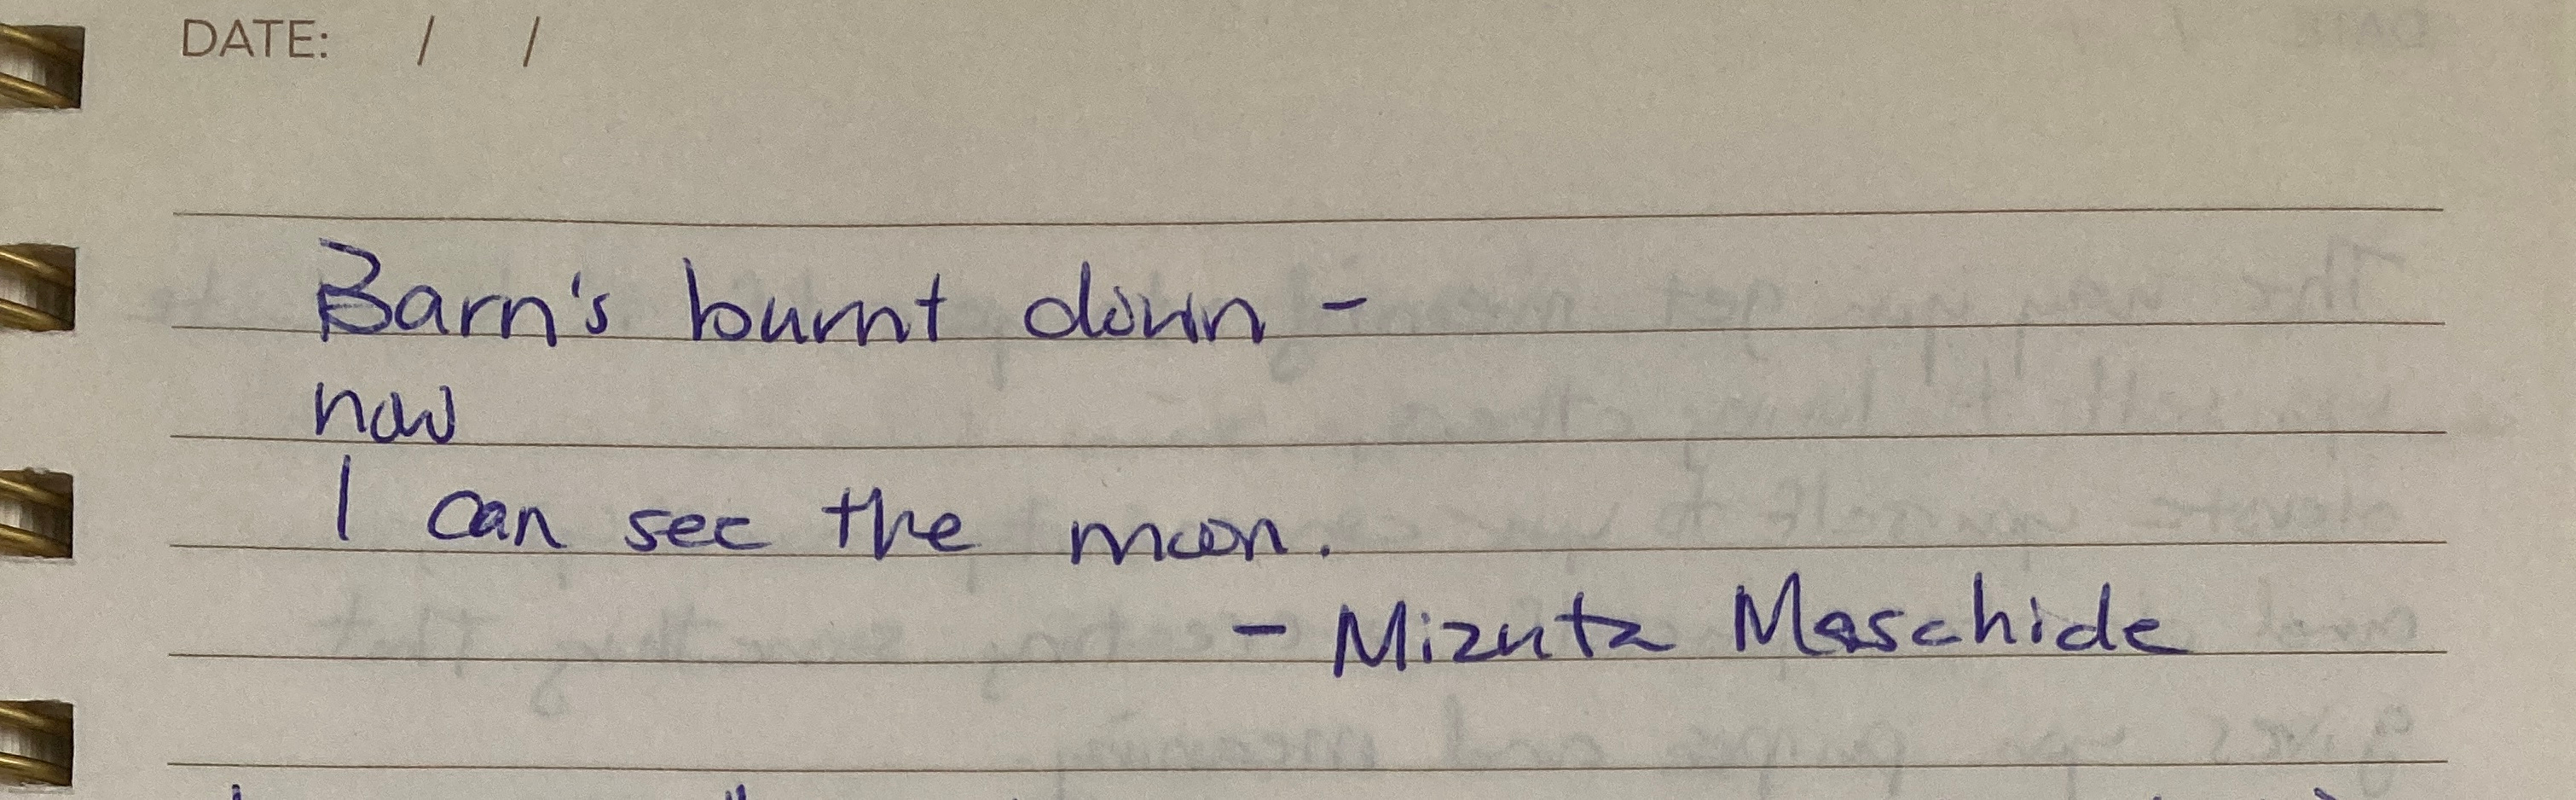 DATE: / /
Barn's burnt down -
now
I can see the moon.
- Mizuta Maschide